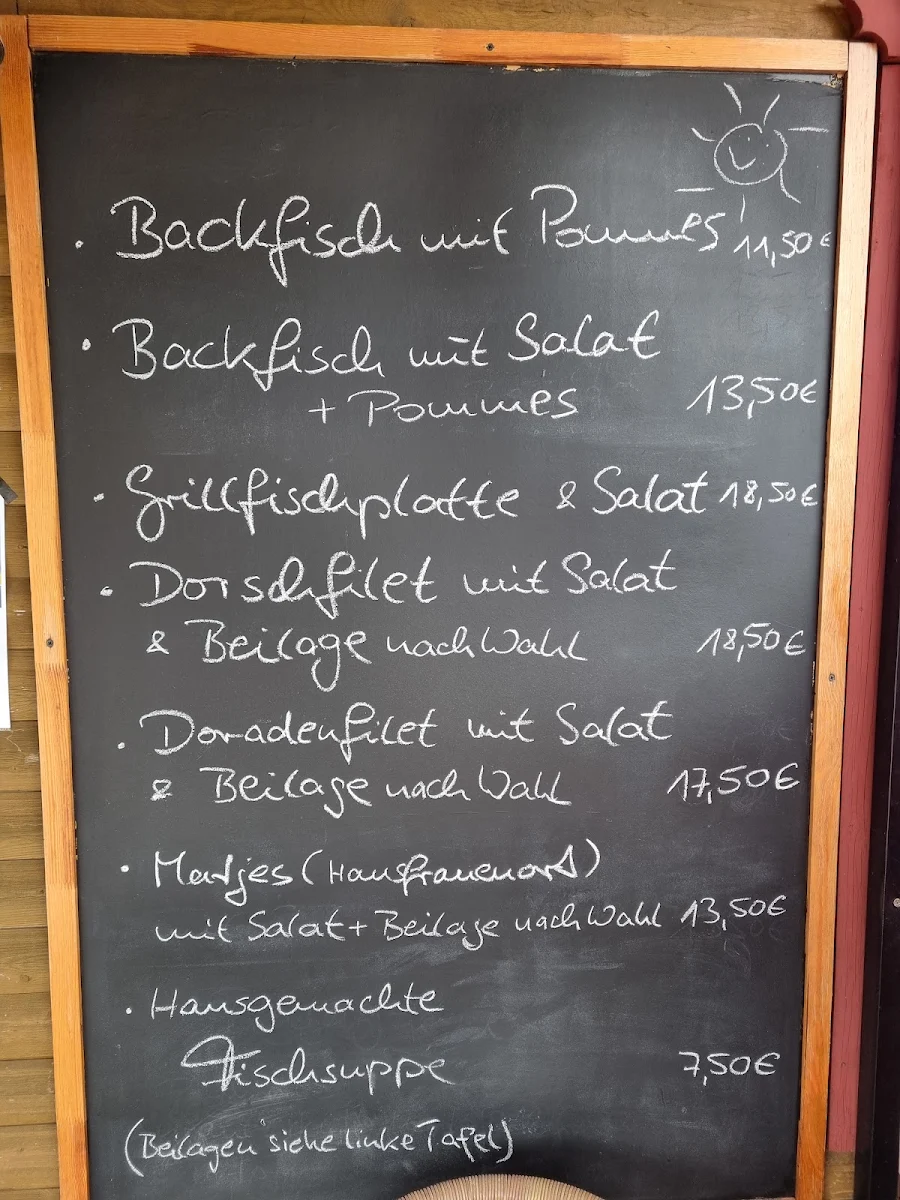 · Backfisch mit Pommes 11,50€
· Backfisch mit Salat
+ Pommes 13,50€
· Grillfischplatte & Salat 18,50€
· Dorschfilet mit Salat
& Beilage nach Wahl 18,50€
· Doradenfilet mit Salat
& Beilage nach Wahl 17,50€
· Matjes (Hausfrauenart)
mit Salat + Beilage nach Wahl 13,50€
· Hausgemachte
Fischsuppe 7,50€
(Beilagen siehe linke Tafel)